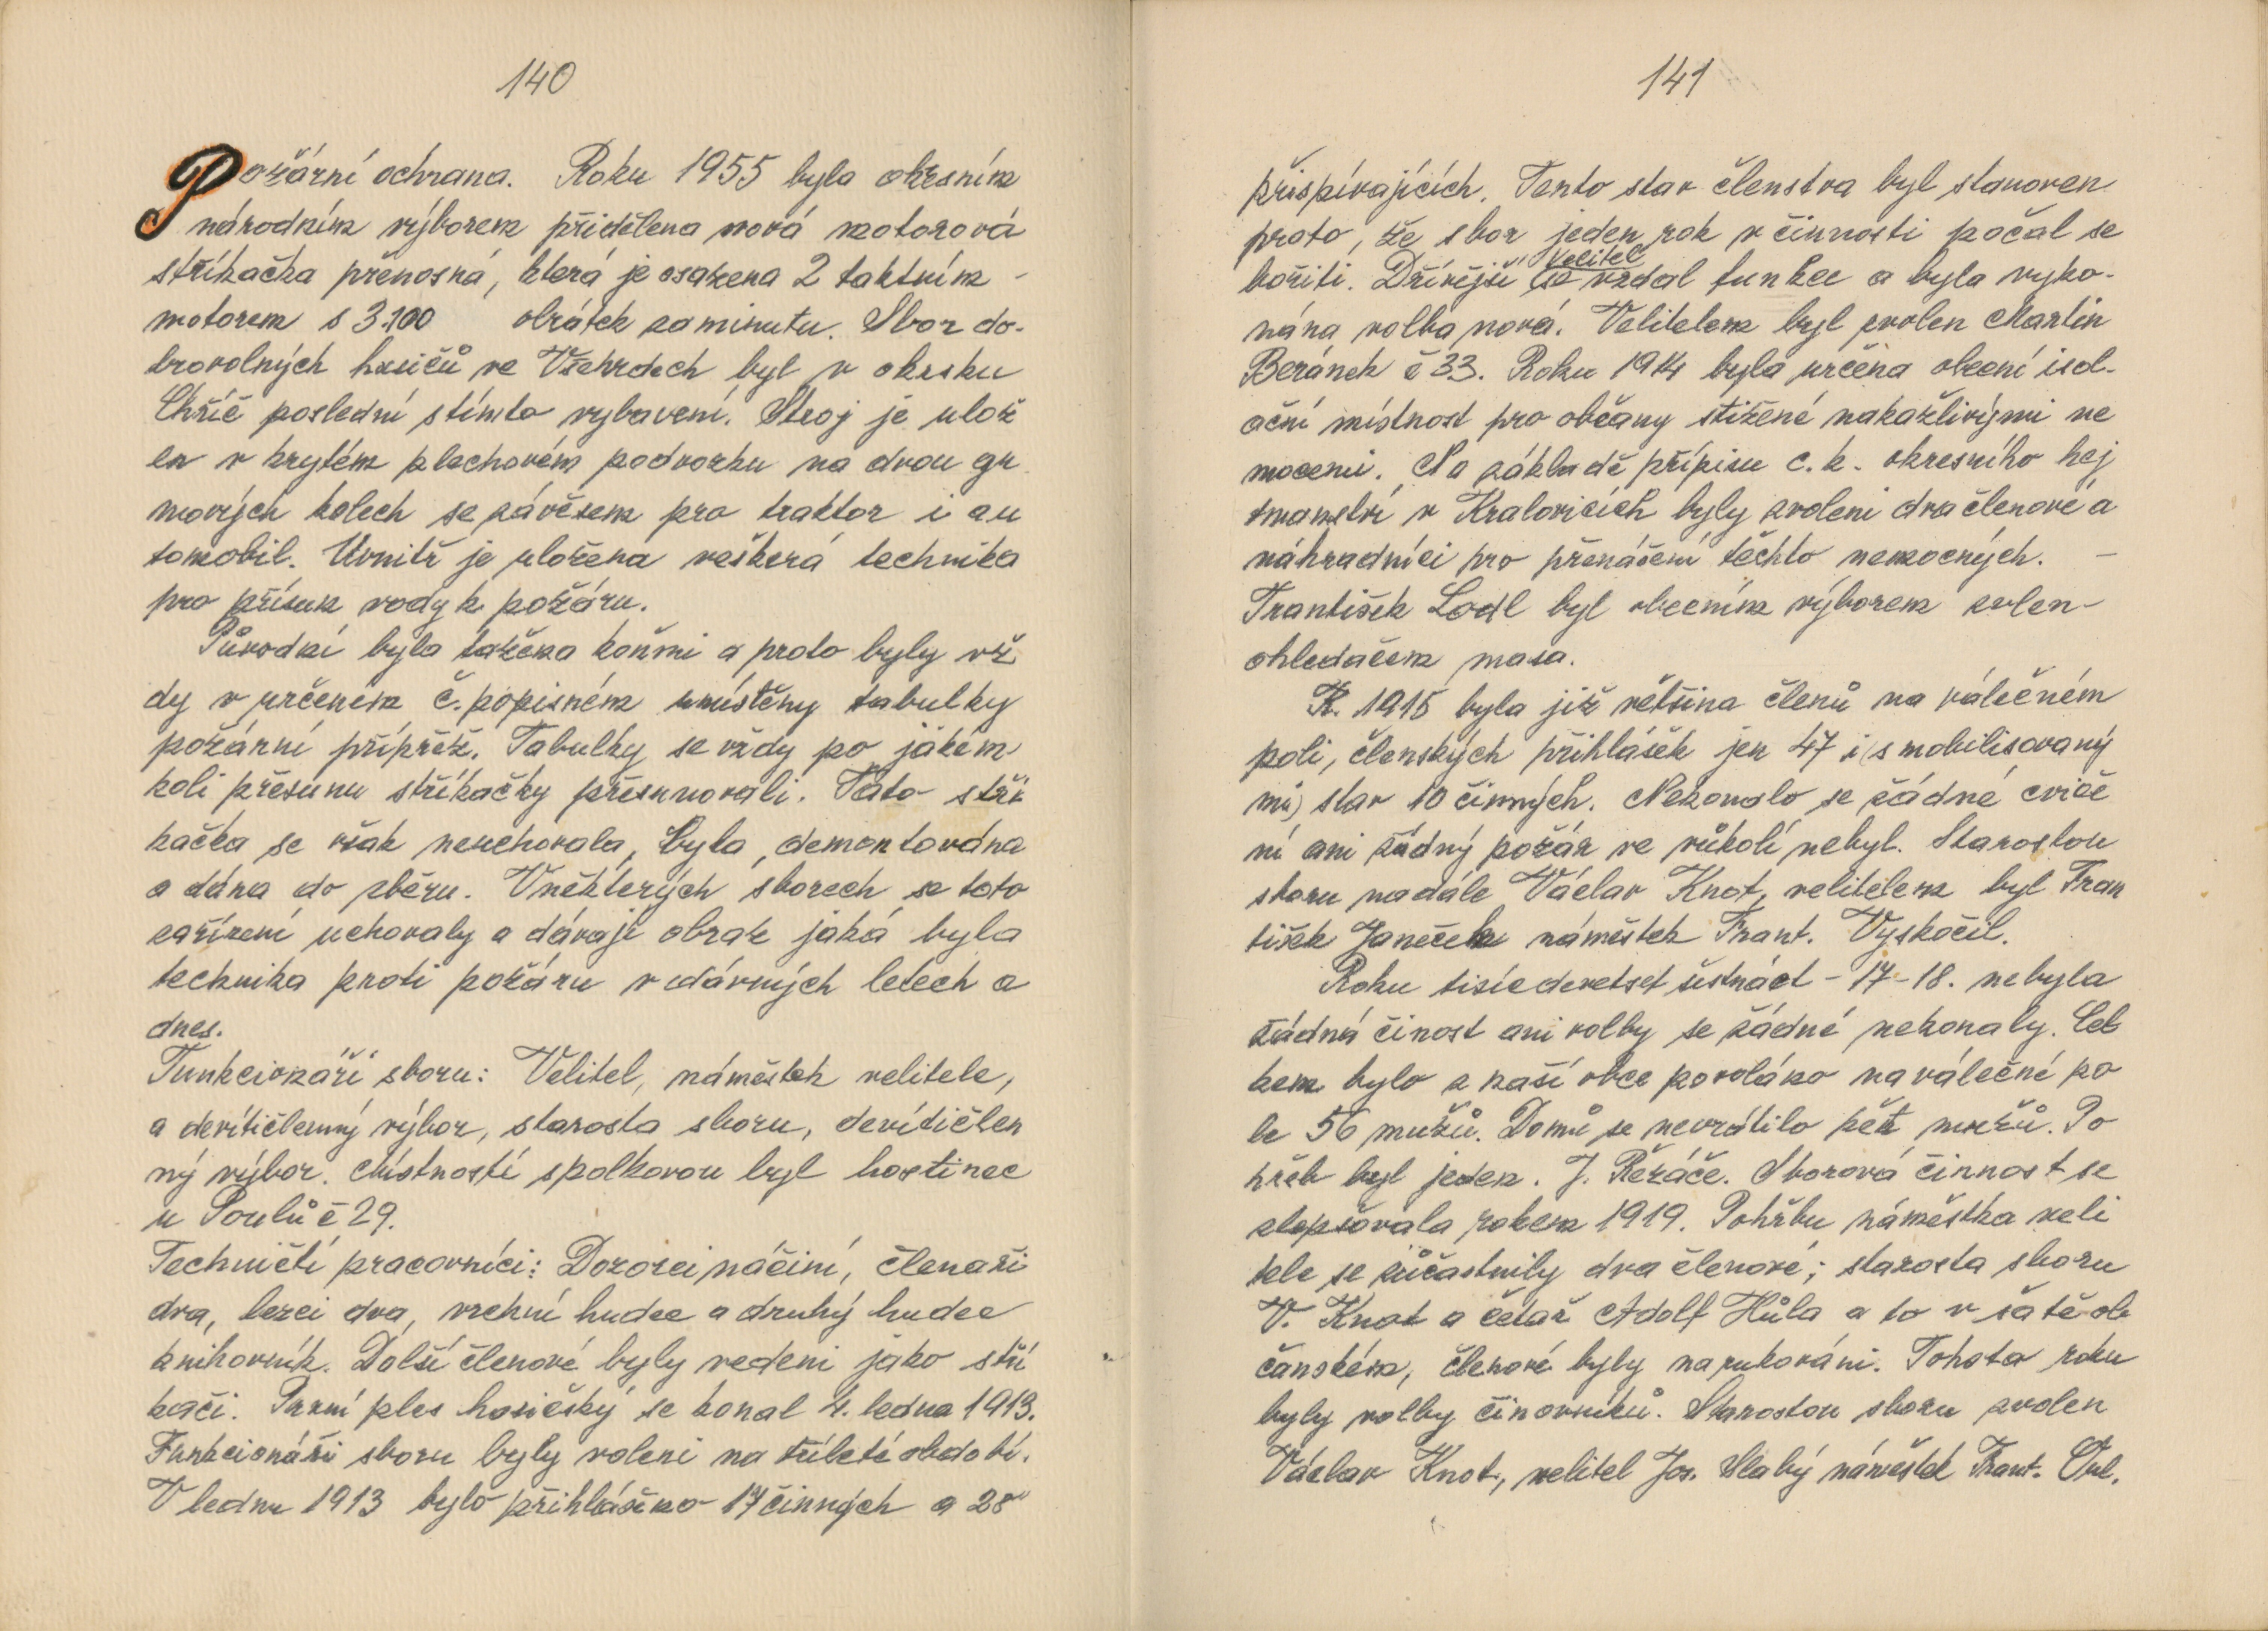 140
Požární ochrana. Roku 1955 byla okresním
národním výborem přidělena nová motorová
stříkačka přenosná, která je osazena 2 taktním -
motorem s 3.100 obrátek za minutu. Sbor do-
brovolných hasičů ve Všehrdech byl v okrsku
Chříč poslední stímto vybavení. Stroj je ulož
en v krytém plechovém podvozku na dvou gu
mových kolech se závěsem pro traktor i au
tomobil. Uvnitř je uložena veškerá technika
pro přísun vody k požáru.
Původní byla tažena koňmi a proto byly vž
dy v určeném č. popisném umístěny tabulky
požární přípřež. Tabulky se vždy po jakém
koli přesunu stříkačky přesunovali. Tato stří
kačka se však neuchovala, byla, demontována
a dána do sběru. Vněkterých sborech se toto
zařízení uchovaly a dávají obraz jaká byla
technika proti požáru v dávných letech a
dnes.
Funkcionáři sboru: Velitel, náměstek velitele,
a devítičlenný výbor, starosta sboru, devítičlen
ný výbor. Místností spolkovou byl hostinec
u Poulů č 29.
Techničtí pracovníci: Dozorci náčiní, členaři
dva, lezci dva, vrchní hudec a druhý hudec
knihovník. Další členové byly vedeni jako stří
kači. První ples hasičský se konal 4. ledna 1913.
Funkcionáři sboru byly voleni na tříleté období.
V lednu 1913 bylo přihlášeno 17 činných a 28
141
přispívajících. Tento stav členstva byl stanoven
proto, že sbor jeden rok v činnosti počal se
bořiti. Dřívější velitel se vzdal funkce a byla vyko-
nána volba nová. Velitelem byl zvolen Martin
Beránek č 33. Roku 1914 byla určena obecní isol-
ační místnost pro občany stižené nakažlivými ne
mocemi. Na základě přípisu c. k. okresního hej
tmanství v Kralovicích byly zvoleni dva členové a
náhradníci pro přenášení těchto nemocných. -
František Lodl byl obecním výborem zvlen-
ohledačem masa.
R. 1915 byla již většina členů na válečném
poli, členských přihlášek jen 47 i (s mobilisovaný
mi) stav 10 činných. Nekonalo se žádné cviče
ní ani žádný požár ve vůkolí nebyl. Starostou
sboru nadále Václav Knot, velitelem byl Fran
tišek Janeček náměstek Frant. Vyskočil.
Roku tisícdevetset šestnáct - 17-18. nebyla
žádná činost ani volby se žádné nekonaly. Cel
kem bylo z naší obce povoláno na válečné po
le 56 mužů. Domů se nevrátilo pět mužů. Po
hřeb byl jeden. J. Řezáče. Sborová činnost se
zlepšovala rokem 1919. Pohřbu náměstka veli
tele se zúčastnily dva členové; starosta sboru
V. Knot a četař Adolf Hůla a to v šatě ob
čanském, členové byly narukováni. Tohoto roku
byly volby činovníků. Starostou sboru zvolen
Václav Knot, velitel Jos. Slabý náměstek Frant.